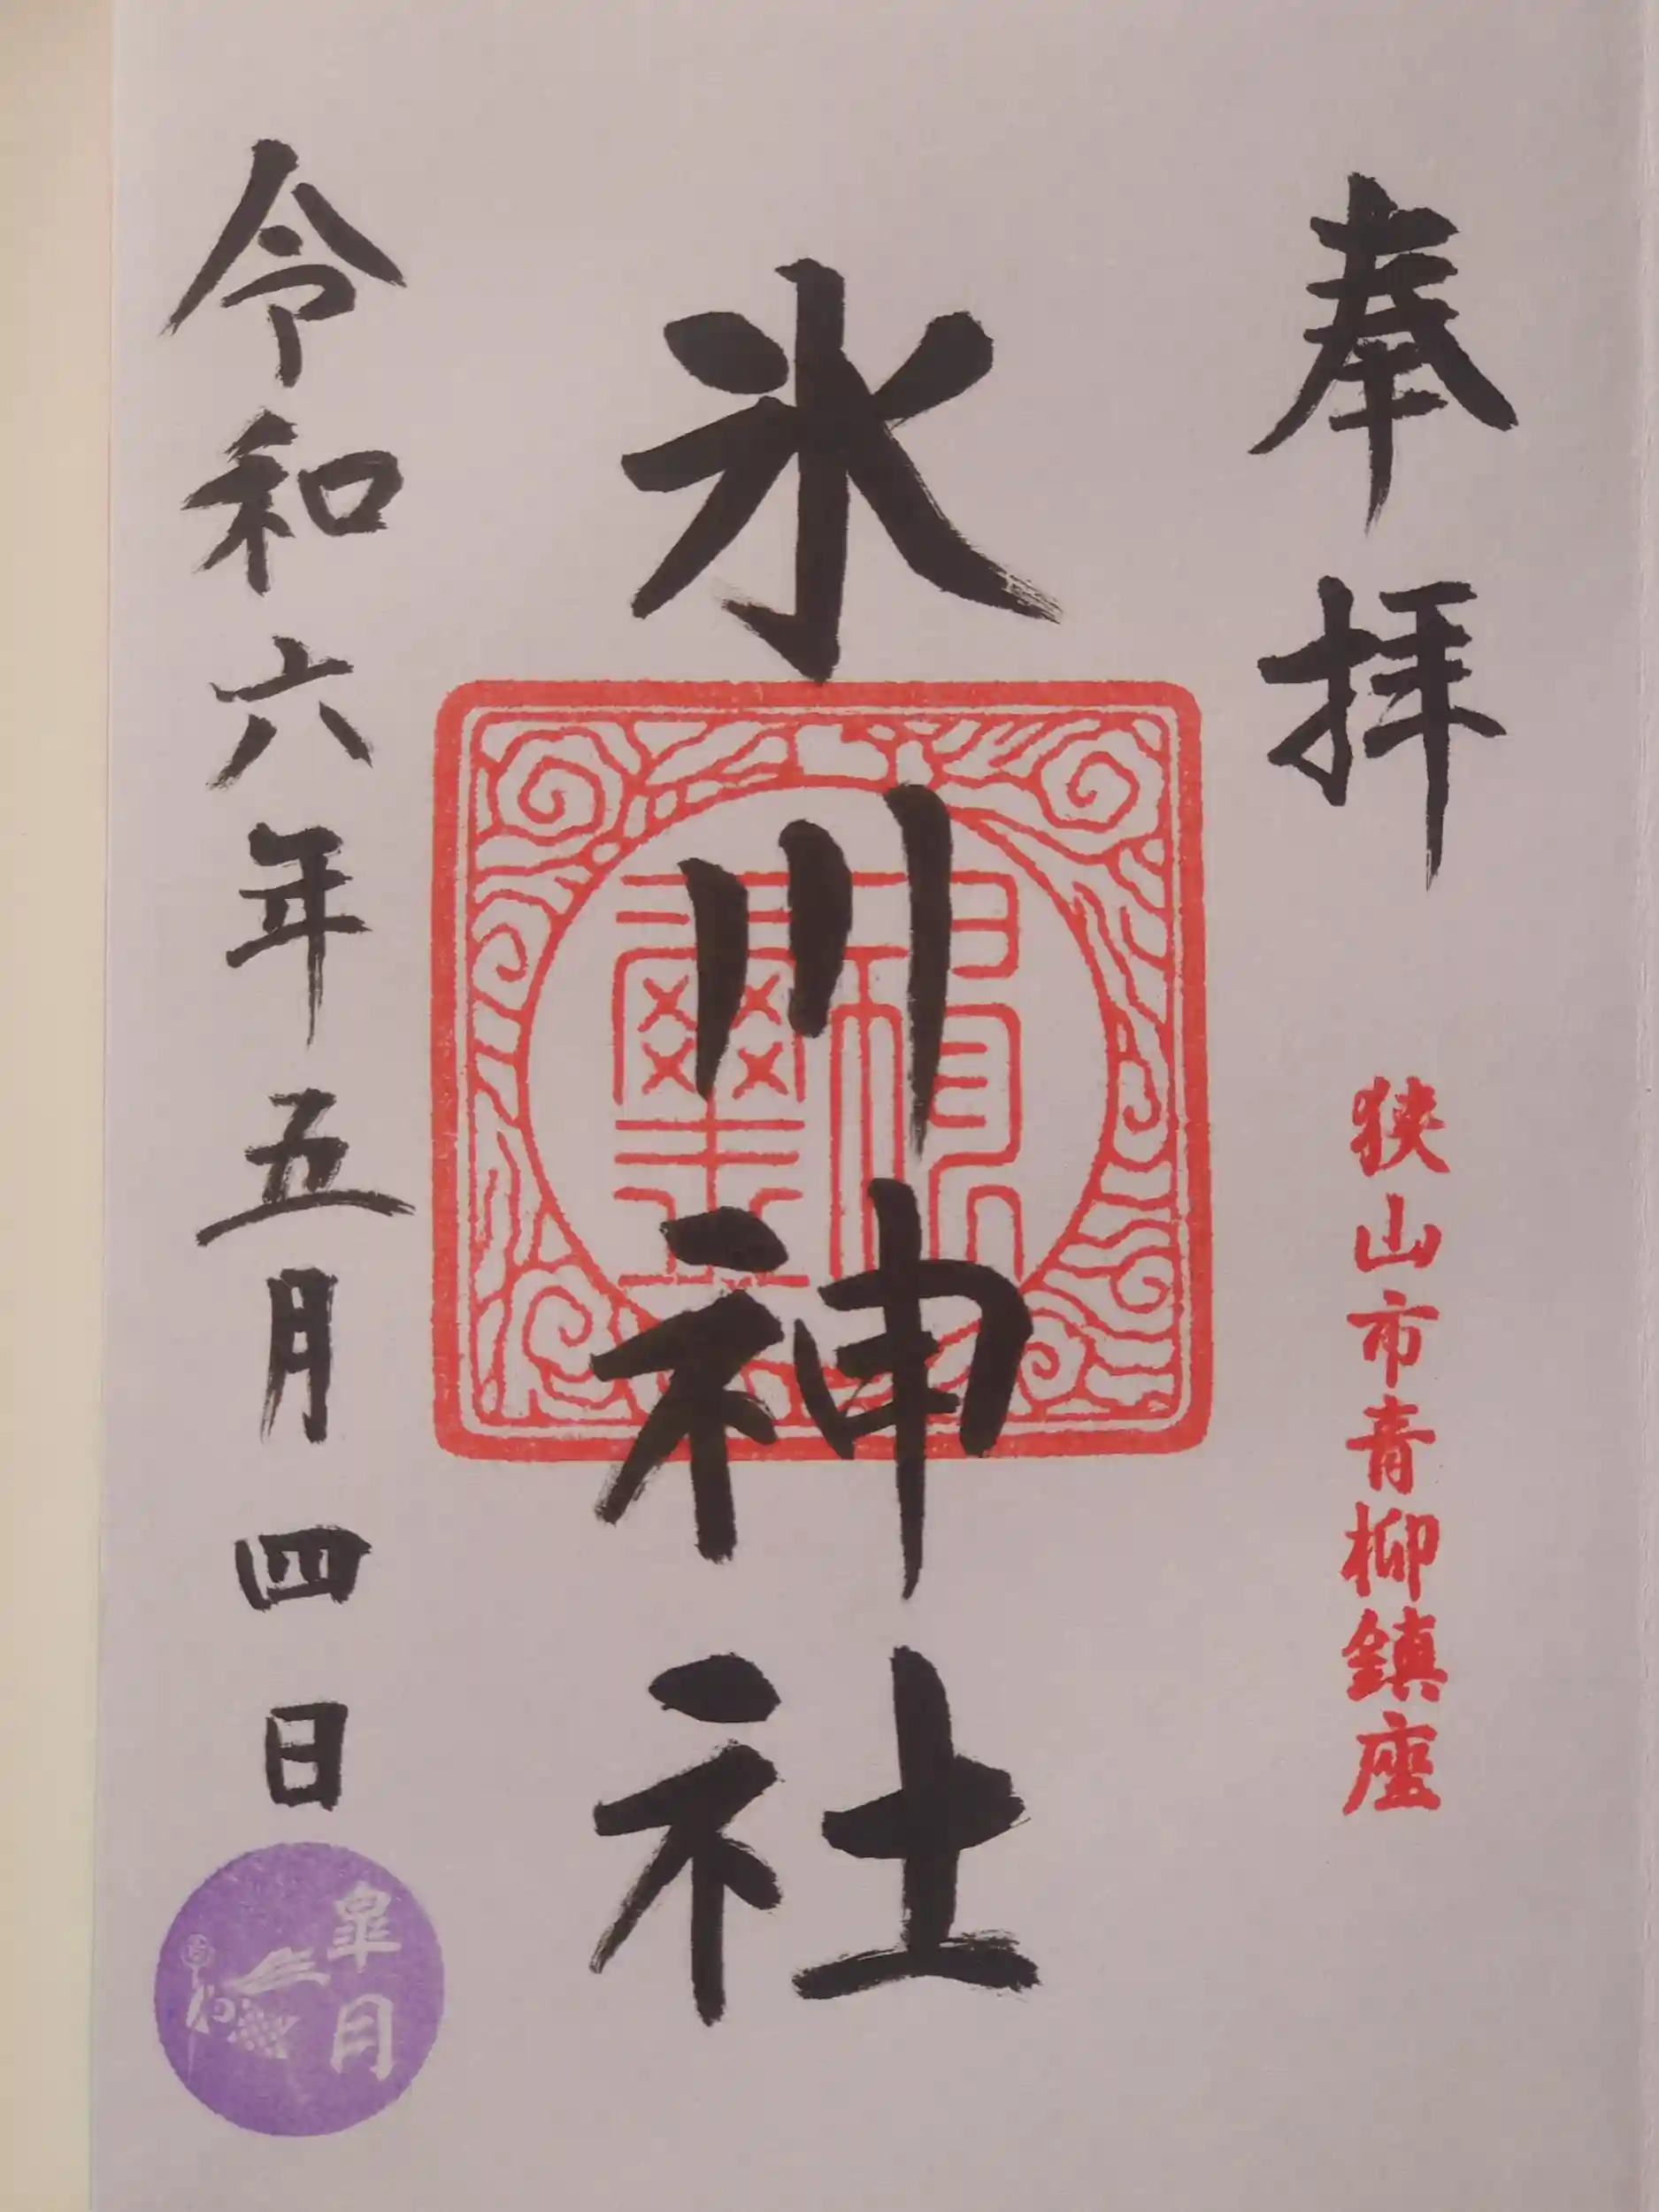 奉拝
狭山市青柳鎮座
氷川神社
令和六年五月四日
皐月